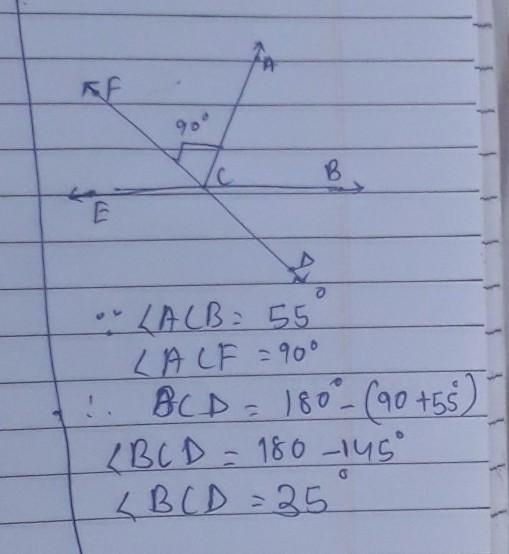 A
F
90°
C
B
E
D
∵ ∠ACB = 55°
∠ACF = 90°
∴ BCD = 180° - (90 + 55°)
∠BCD = 180 - 145°
∠BCD = 35°